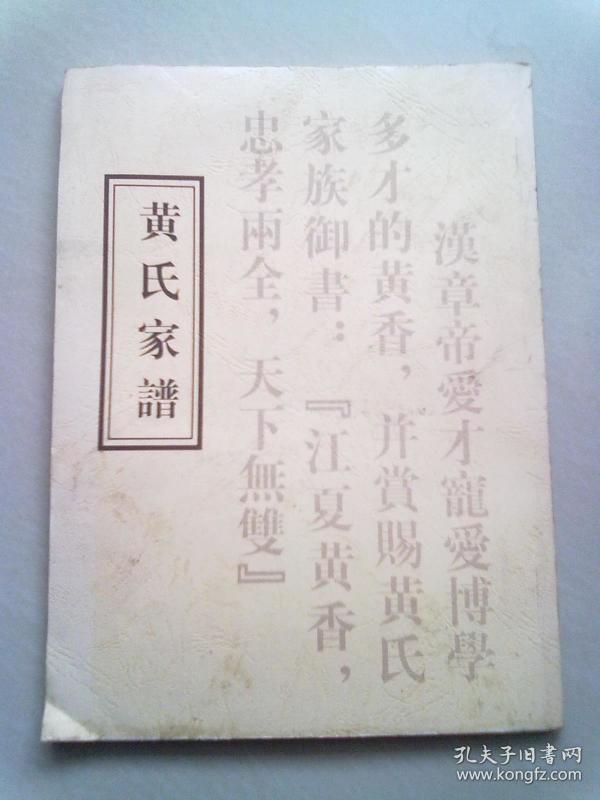 黄氏家譜
漢章帝愛才寵愛博學
多才的黄香，并賞賜黄氏
家族御書：『江夏黄香，
忠孝兩全，天下無雙』
孔夫子旧書网
www.kongfz.com